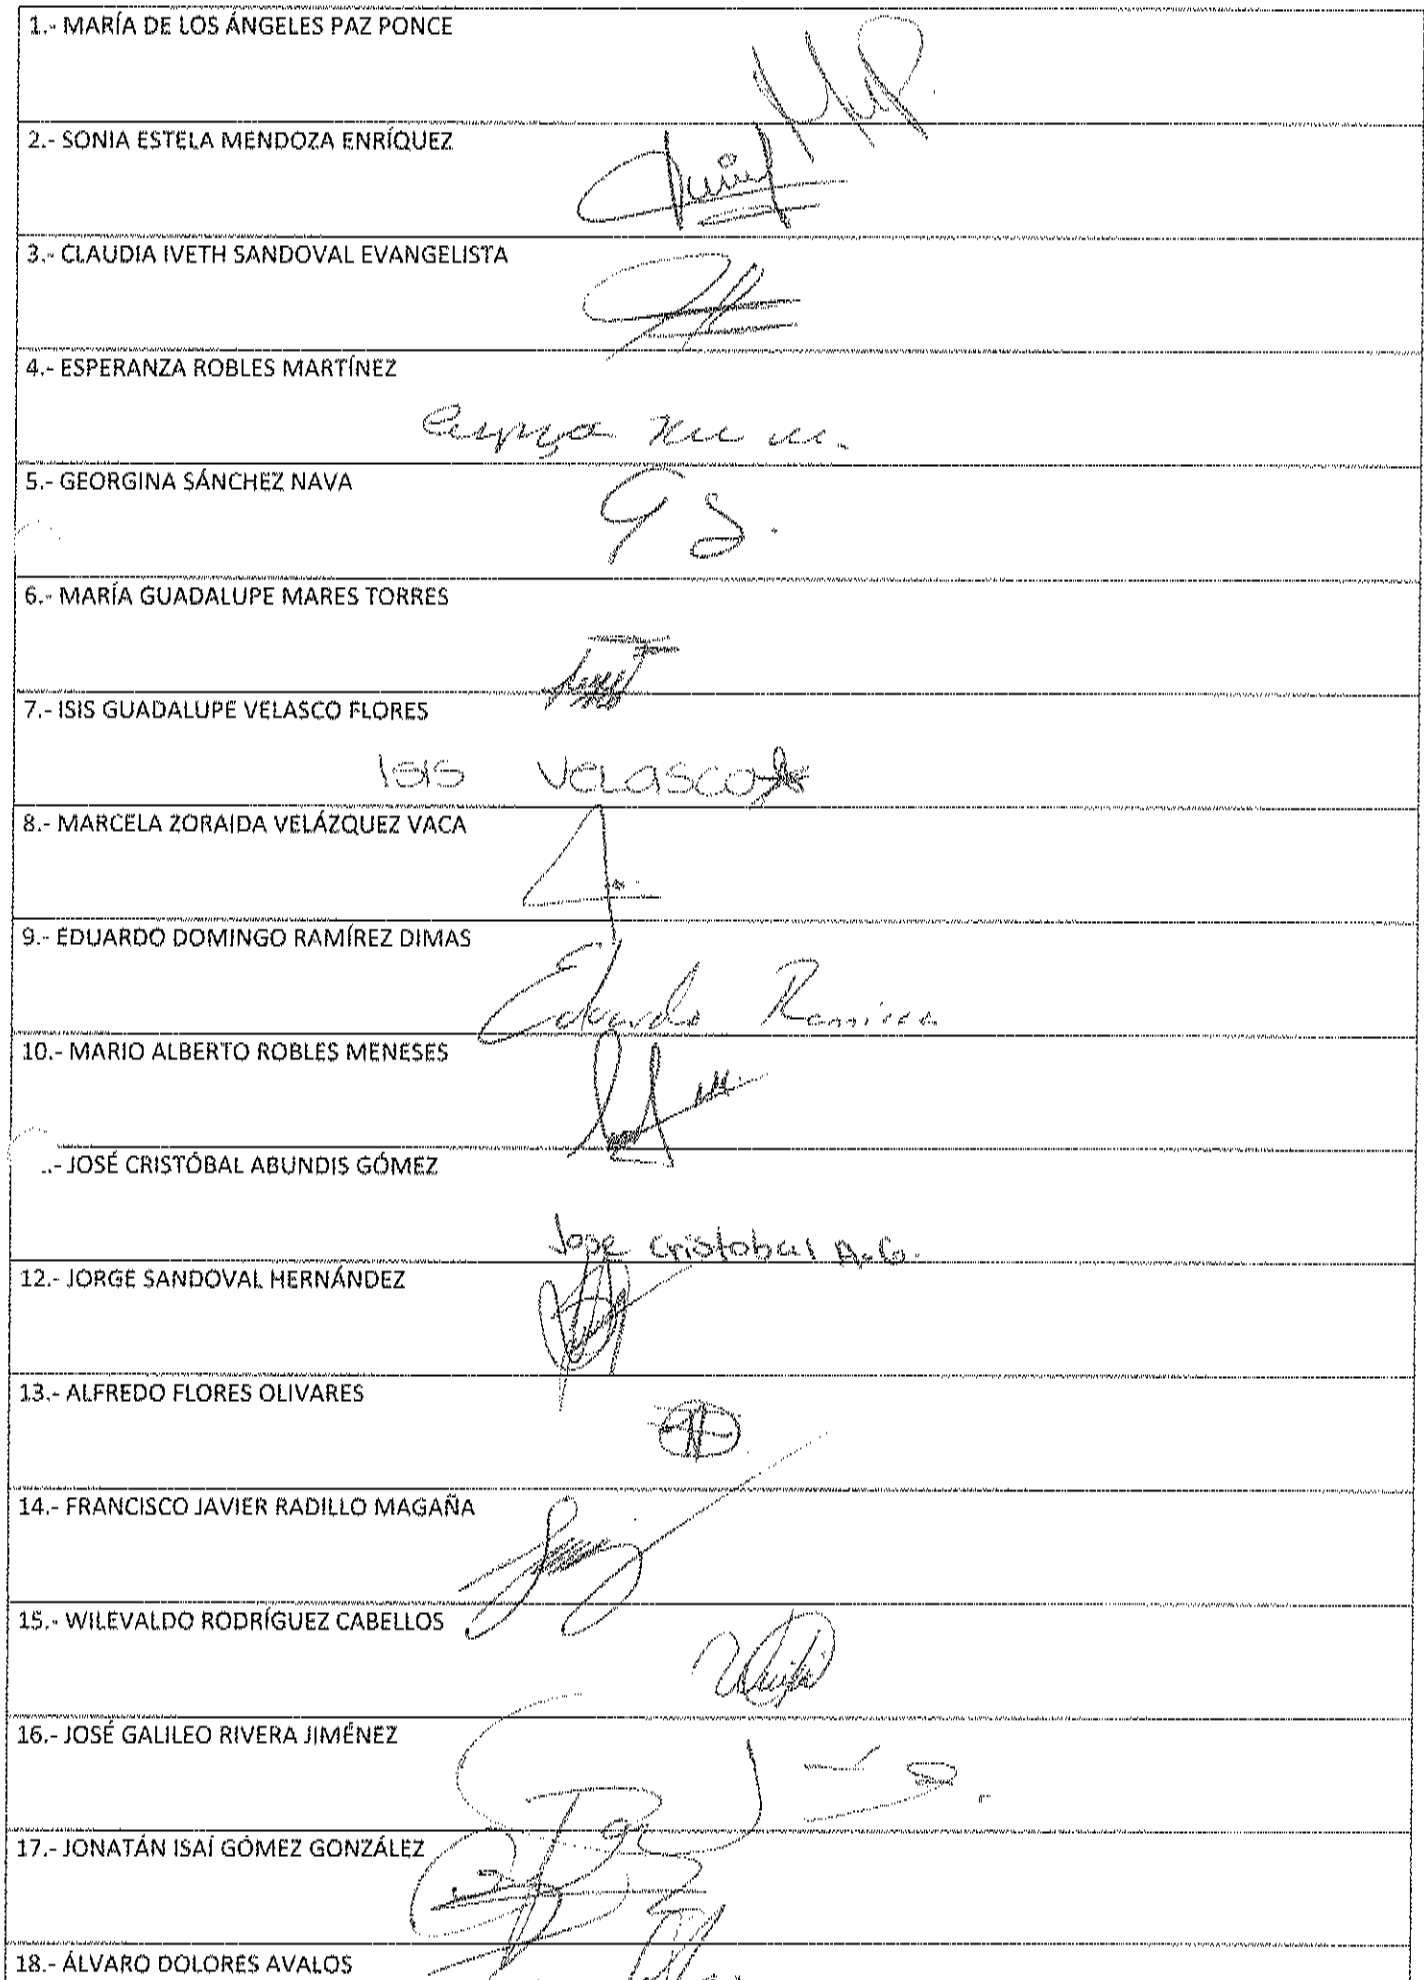 1.- MARÍA DE LOS ÁNGELES PAZ PONCE
2.- SONIA ESTELA MENDOZA ENRÍQUEZ
3.- CLAUDIA IVETH SANDOVAL EVANGELISTA
4.- ESPERANZA ROBLES MARTÍNEZ
5.- GEORGINA SÁNCHEZ NAVA
G S.
6.- MARÍA GUADALUPE MARES TORRES
7.- ISIS GUADALUPE VELASCO FLORES
ISIS VELASCO
8.- MARCELA ZORAIDA VELÁZQUEZ VACA
9.- EDUARDO DOMINGO RAMÍREZ DIMAS
Eduardo Ramirez
10.- MARIO ALBERTO ROBLES MENESES
.- JOSÉ CRISTÓBAL ABUNDIS GÓMEZ
Jose Cristobal A.G.
12.- JORGE SANDOVAL HERNÁNDEZ
13.- ALFREDO FLORES OLIVARES
14.- FRANCISCO JAVIER RADILLO MAGAÑA
15.- WILEVALDO RODRÍGUEZ CABELLOS
16.- JOSÉ GALILEO RIVERA JIMÉNEZ
17.- JONATÁN ISAÍ GÓMEZ GONZÁLEZ
18.- ÁLVARO DOLORES AVALOS